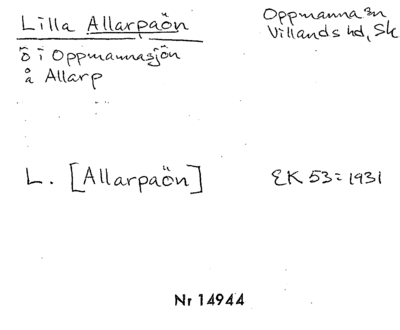 Lilla Allarpaön
Oppmanna sn
Villands hd, Sk
ö i Oppmannasjön
å Allarp
L. [Allarpaön]
EK 53 = 1931
Nr 14944